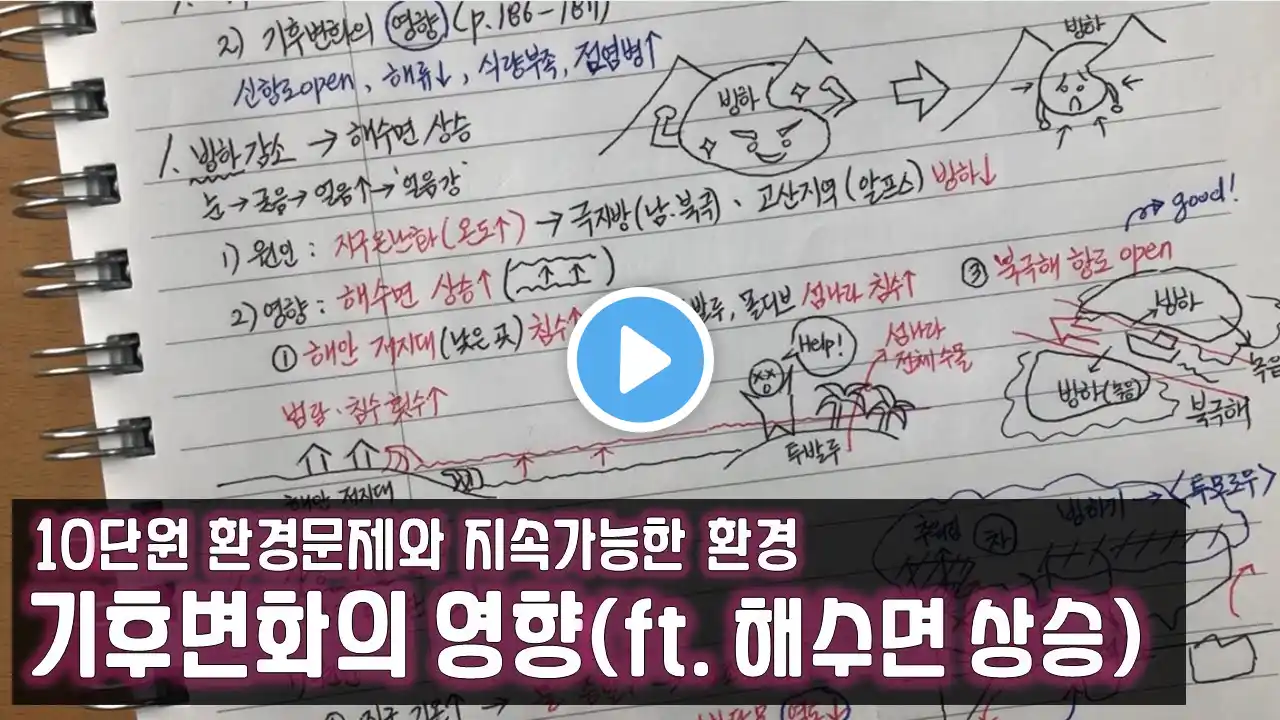 2) 기후변화의 영향 (p.186-187)
신항로open, 해류↓, 식량부족, 전염병↑
1. 빙하 감소 → 해수면 상승
눈 → 굳음 → 얼음↑ → '얼음강'
빙하
빙하
1) 원인 : 지구온난화(온도↑) → 극지방(남·북극)、고산지역(알프스) 빙하↓
2) 영향 : 해수면 상승↑
① 해안 저지대(낮은 곳) 침수↑
발루, 몰디브 섬나라 침수↑
③ 북극해 항로 open
good!
범람·침수 횟수↑
Help!
섬나라
전체 수몰
투발루
빙하
빙하(녹음)
녹음
북극해
해안 저지대
빙하기 → <투모로우>
10단원 환경문제와 지속가능한 환경
기후변화의 영향(ft. 해수면 상승)